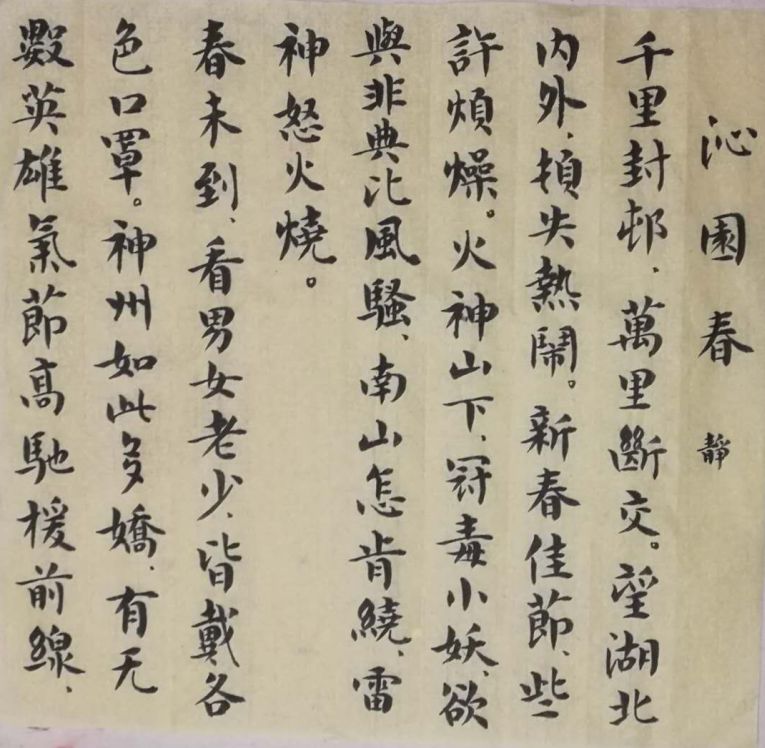 沁園春 靜
千里封邨、萬里斷交。望湖北
内外、頓失熱鬧。新春佳節、些
許煩燥。火神山下、冠毒小妖、欲
與非典比風騷、南山怎肯繞、雷
神怒火燒。
春未到、看男女老少、皆戴各
色口罩。神州如此多嬌、有无
數英雄氣節高馳援前線、